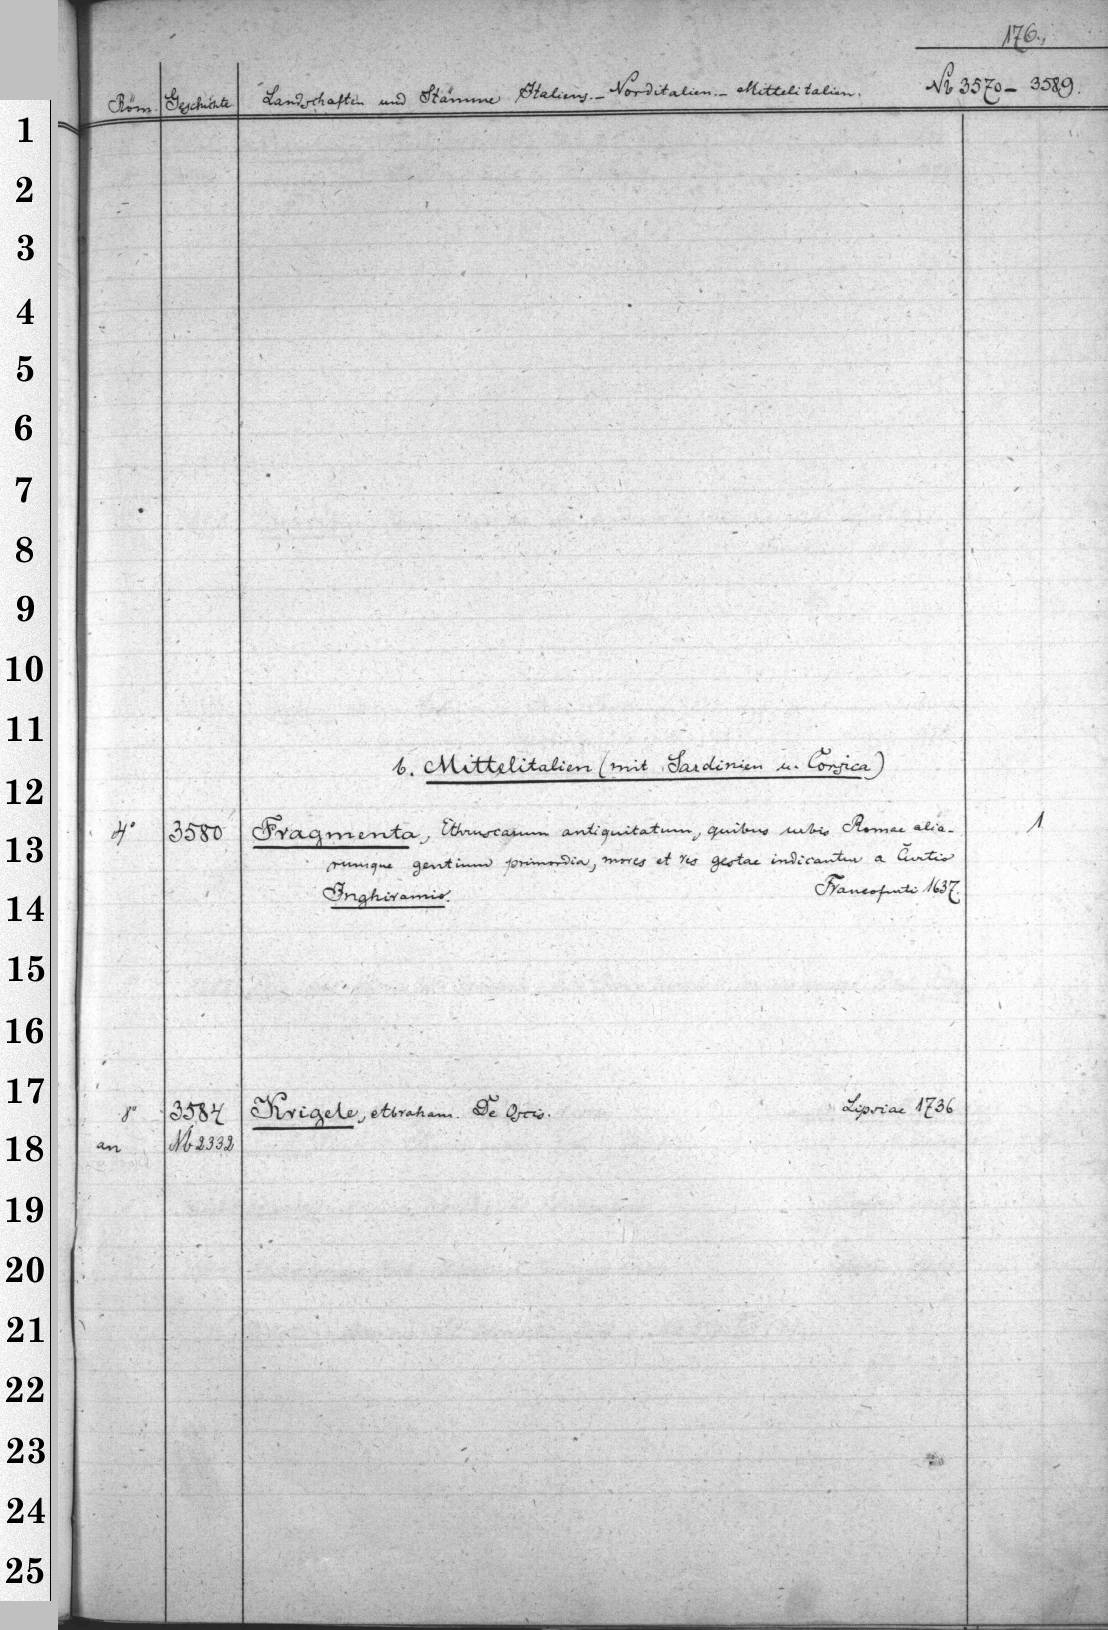 176.
Röm. Geschichte Landschaften und Stämme Italiens. - Norditalien. - Mittelitalien. № 3570 - 3589.
1
2
3
4
5
6
7
8
9
10
11
b. Mittelitalien (mit Sardinien u. Corsica)
12
4° 3580 Fragmenta, Ethruscarum antiquitatum, quibus urbis Romae alia- 1
13
rumque gentium primordia, mores et res gestae indicantur a Curtio
Inghiramio. Francofurti 1637.
14
15
16
17
8° 3584 Krigele, Abraham. De Oscis. Lipsiae 1736
18
an № 2332
19
20
21
22
23
24
25